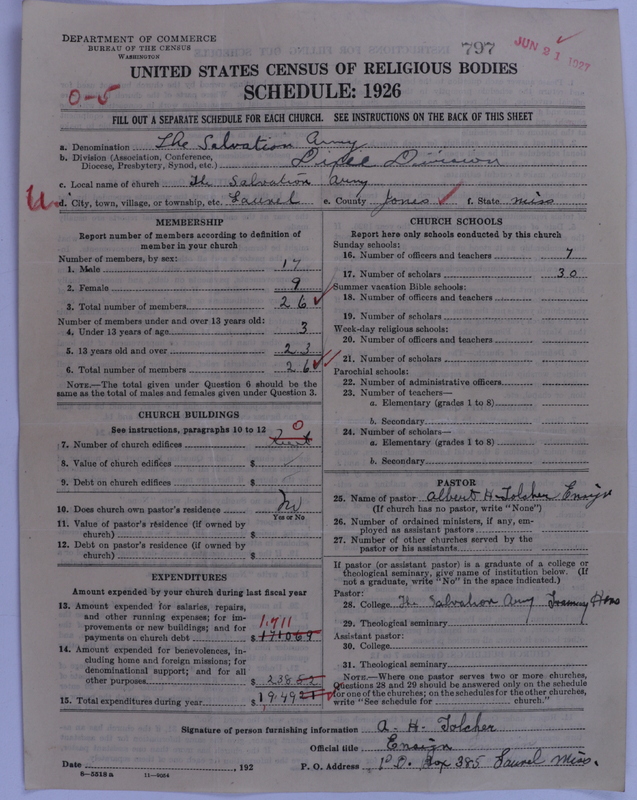 DEPARTMENT OF COMMERCE
BUREAU OF THE CENSUS
WASHINGTON
797
JUN 21 1927
UNITED STATES CENSUS OF RELIGIOUS BODIES
SCHEDULE: 1926
0-5
FILL OUT A SEPARATE SCHEDULE FOR EACH CHURCH. SEE INSTRUCTIONS ON THE BACK OF THIS SHEET
a. Denomination The Salvation Army
b. Division (Association, Conference, Diocese, Presbytery, Synod, etc.) Division
c. Local name of church The Salvation Army
d. City, town, village, or township, etc. Laurel e. County Jones f. State Miss
MEMBERSHIP
Report number of members according to definition of member in your church
Number of members, by sex:
1. Male 17
2. Female 9
3. Total number of members 26
Number of members under and over 13 years old:
4. Under 13 years of age 3
5. 13 years old and over 23
6. Total number of members 26
NOTE.—The total given under Question 6 should be the same as the total of males and females given under Question 3.
CHURCH BUILDINGS
See instructions, paragraphs 10 to 12
7. Number of church edifices 0
8. Value of church edifices $
9. Debt on church edifices $
10. Does church own pastor's residence No
Yes or No
11. Value of pastor's residence (if owned by church) $
12. Debt on pastor's residence (if owned by church) $
EXPENDITURES
Amount expended by your church during last fiscal year
13. Amount expended for salaries, repairs, and other running expenses; for improvements or new buildings; and for payments on church debt $ 1,711 171069
14. Amount expended for benevolences, including home and foreign missions; for denominational support; and for all other purposes $ 23852
15. Total expenditures during year $ 1949
CHURCH SCHOOLS
Report here only schools conducted by this church
Sunday schools:
16. Number of officers and teachers 7
17. Number of scholars 30
Summer vacation Bible schools:
18. Number of officers and teachers
19. Number of scholars
Week-day religious schools:
20. Number of officers and teachers
21. Number of scholars
Parochial schools:
22. Number of administrative officers
23. Number of teachers—
a. Elementary (grades 1 to 8)
b. Secondary
24. Number of scholars—
a. Elementary (grades 1 to 8)
b. Secondary
PASTOR
25. Name of pastor Albert H. Tolcher Ensign
(If church has no pastor, write "None")
26. Number of ordained ministers, if any, employed as assistant pastors
27. Number of other churches served by the pastor or his assistants
If pastor (or assistant pastor) is a graduate of a college or theological seminary, give name of institution below. (If not a graduate, write "No" in the space indicated.)
Pastor:
28. College The Salvation Army Training
29. Theological seminary
Assistant pastor:
30. College
31. Theological seminary
NOTE.—Where one pastor serves two or more churches, Questions 28 and 29 should be answered only on the schedule for one of the churches; on the schedules for the other churches, write "See schedule for church."
Signature of person furnishing information A. H. Tolcher
Official title Ensign
Date , 192
P. O. Address P.O. Box 385 Laurel Miss.
8-5518a 11-9064